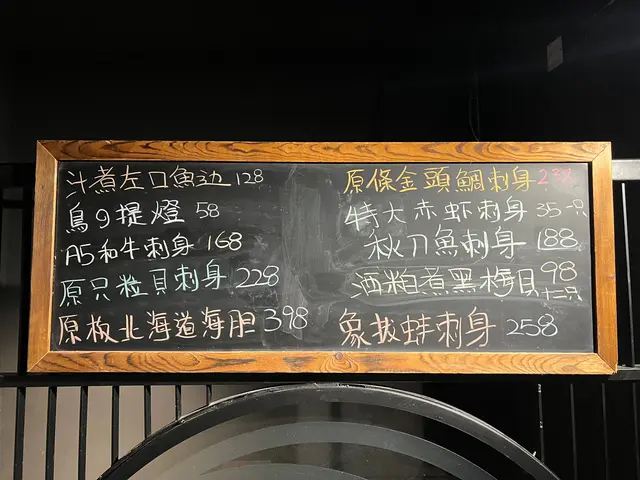 汁煮左口魚边 128
鳥9提燈 58
A5和牛刺身 168
原只粒貝刺身 228
原板北海道海胆 398
原條金頭鯛刺身 238
特大赤虾刺身 35一只
秋刀魚刺身 188
酒粕煮黑梅貝 98
十二只
象拔蚌刺身 258